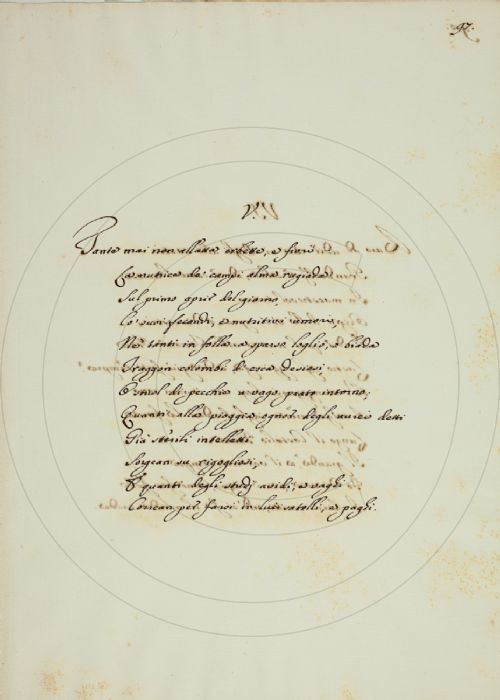 97.
V.
Tante mai non allatta erbette, e fiori
La nutrice de' campi alma rugiada
Sul primo aprir del giorno,
Co' suoi fecondi, e nutritivi umori,
Ne' tanti in folla a sparso loglio, o biada
Traggon colombi d' esca desiosi,
O stuol di pecchie a vago prato intorno;
Quanti alla pioggia ognor degli aurei detti
Già sterili intelletti
Sorgean su rigogliosi,
E quanti degli studj avidi, e vaghi
Correan per farsi in lui satolli, e paghi.